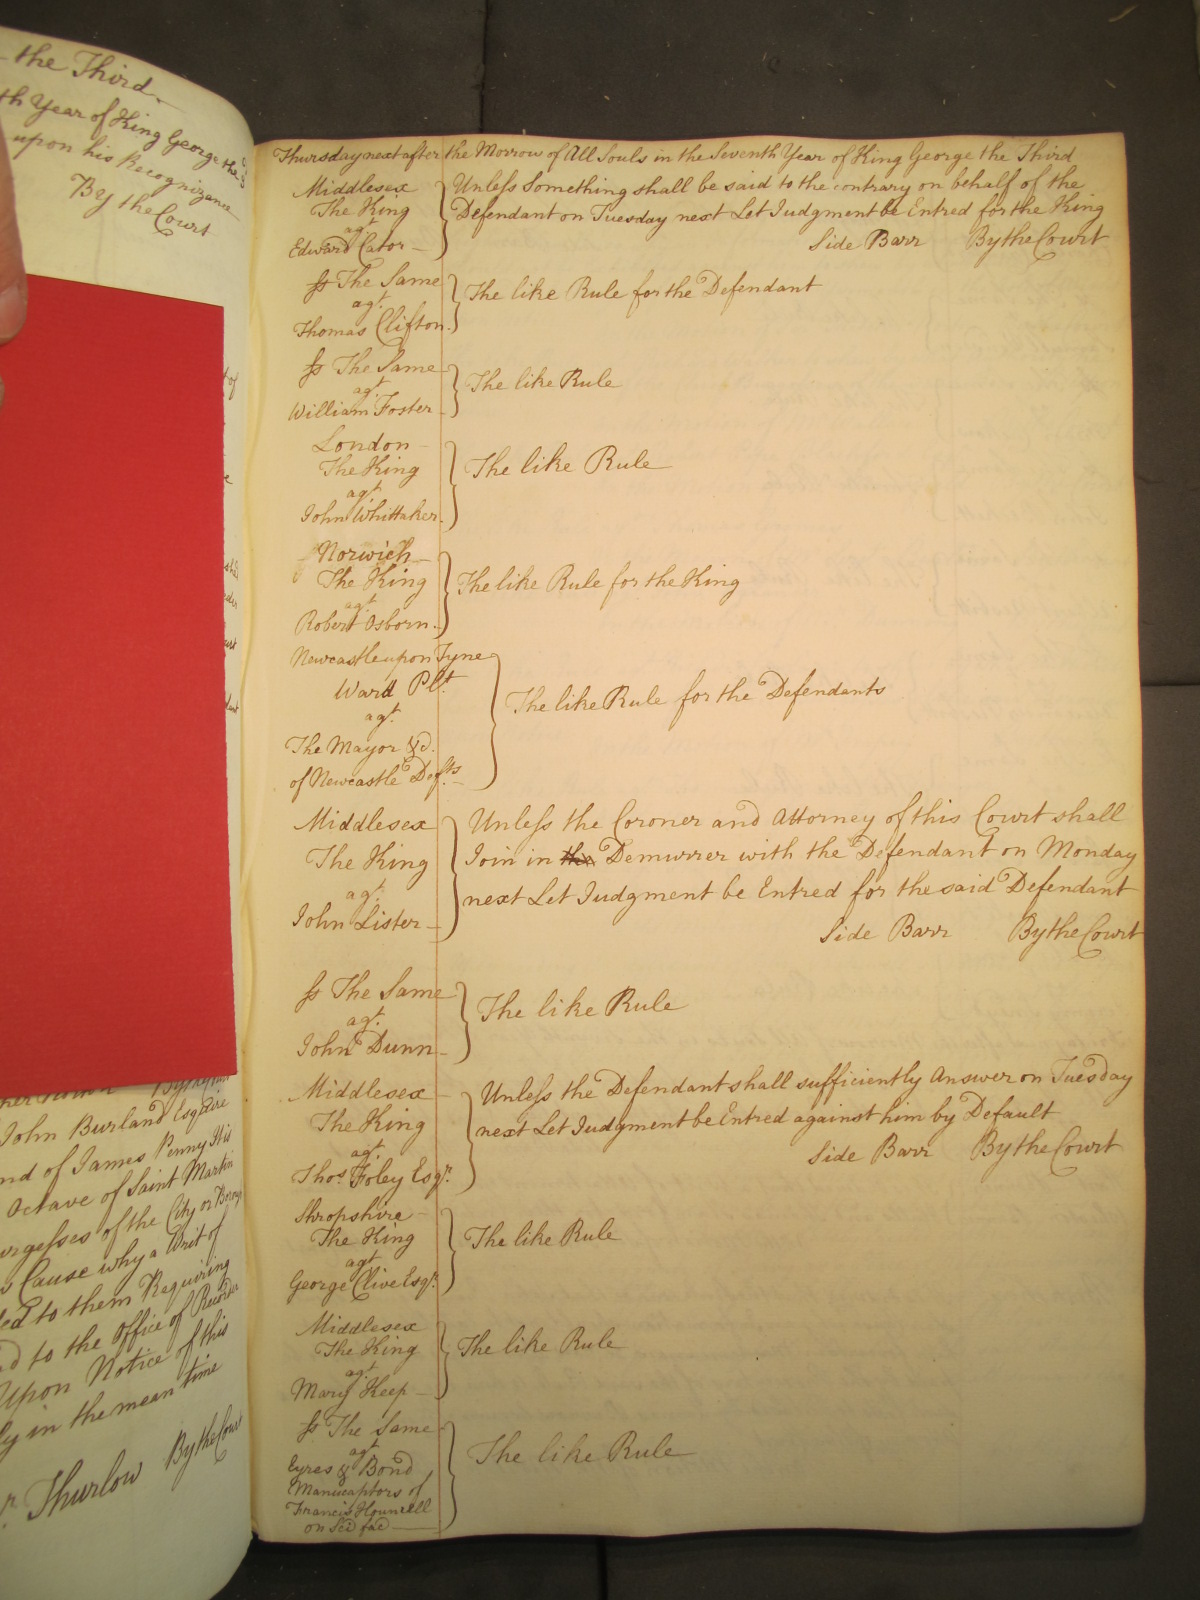 the Third
th Year of King George the 3
upon his Recognizance
By the Court
Thursday next after the Morrow of All Souls in the Seventh Year of King George the Third
Middlesex
The King
agt.
Edward Cator
Unless Something shall be said to the contrary on behalf of the
Defendant on Tuesday next Let Judgment be Entred for the King
Side Barr By the Court
Ss The Same
agt.
Thomas Clifton.
The like Rule for the Defendant
Ss The Same
agt.
William Foster
The like Rule
London
The King
agt.
John Whittaker.
The like Rule
Norwich
The King
agt.
Robert Osborn.
The like Rule for the King
Newcastle upon Tyne
Ward Plt.
agt.
The Mayor &c.
of Newcastle Defts.
The like Rule for the Defendants
Middlesex
The King
agt.
John Lister
Unless the Coroner and Attorney of this Court shall
Join in the Demurrer with the Defendant on Monday
next Let Judgment be Entred for the said Defendant
Side Barr By the Court
Ss The Same
agt.
John Dunn
The like Rule
Middlesex
The King
agt.
Thos. Foley Esqr.
Unless the Defendant shall sufficiently Answer on Tuesday
next Let Judgment be Entred against him by Default
Side Barr By the Court
Shropshire
The King
agt
George Clive Esqr.
The like Rule
Middlesex
The King
agt.
Mary Keep
The like Rule
Ss The Same
agt
Eyres & Bond
Manucaptors of
Francis Hounsell
on Sci fac
The like Rule
John Burland Esquire
nd of James Penny His
Octave of Saint Martin
urgesses of the City or Borough
Cause why a Writ of
ed to them Requiring
to the Office of Recorder
Upon Notice of this
ly in the mean time
r. Thurlow By the Court